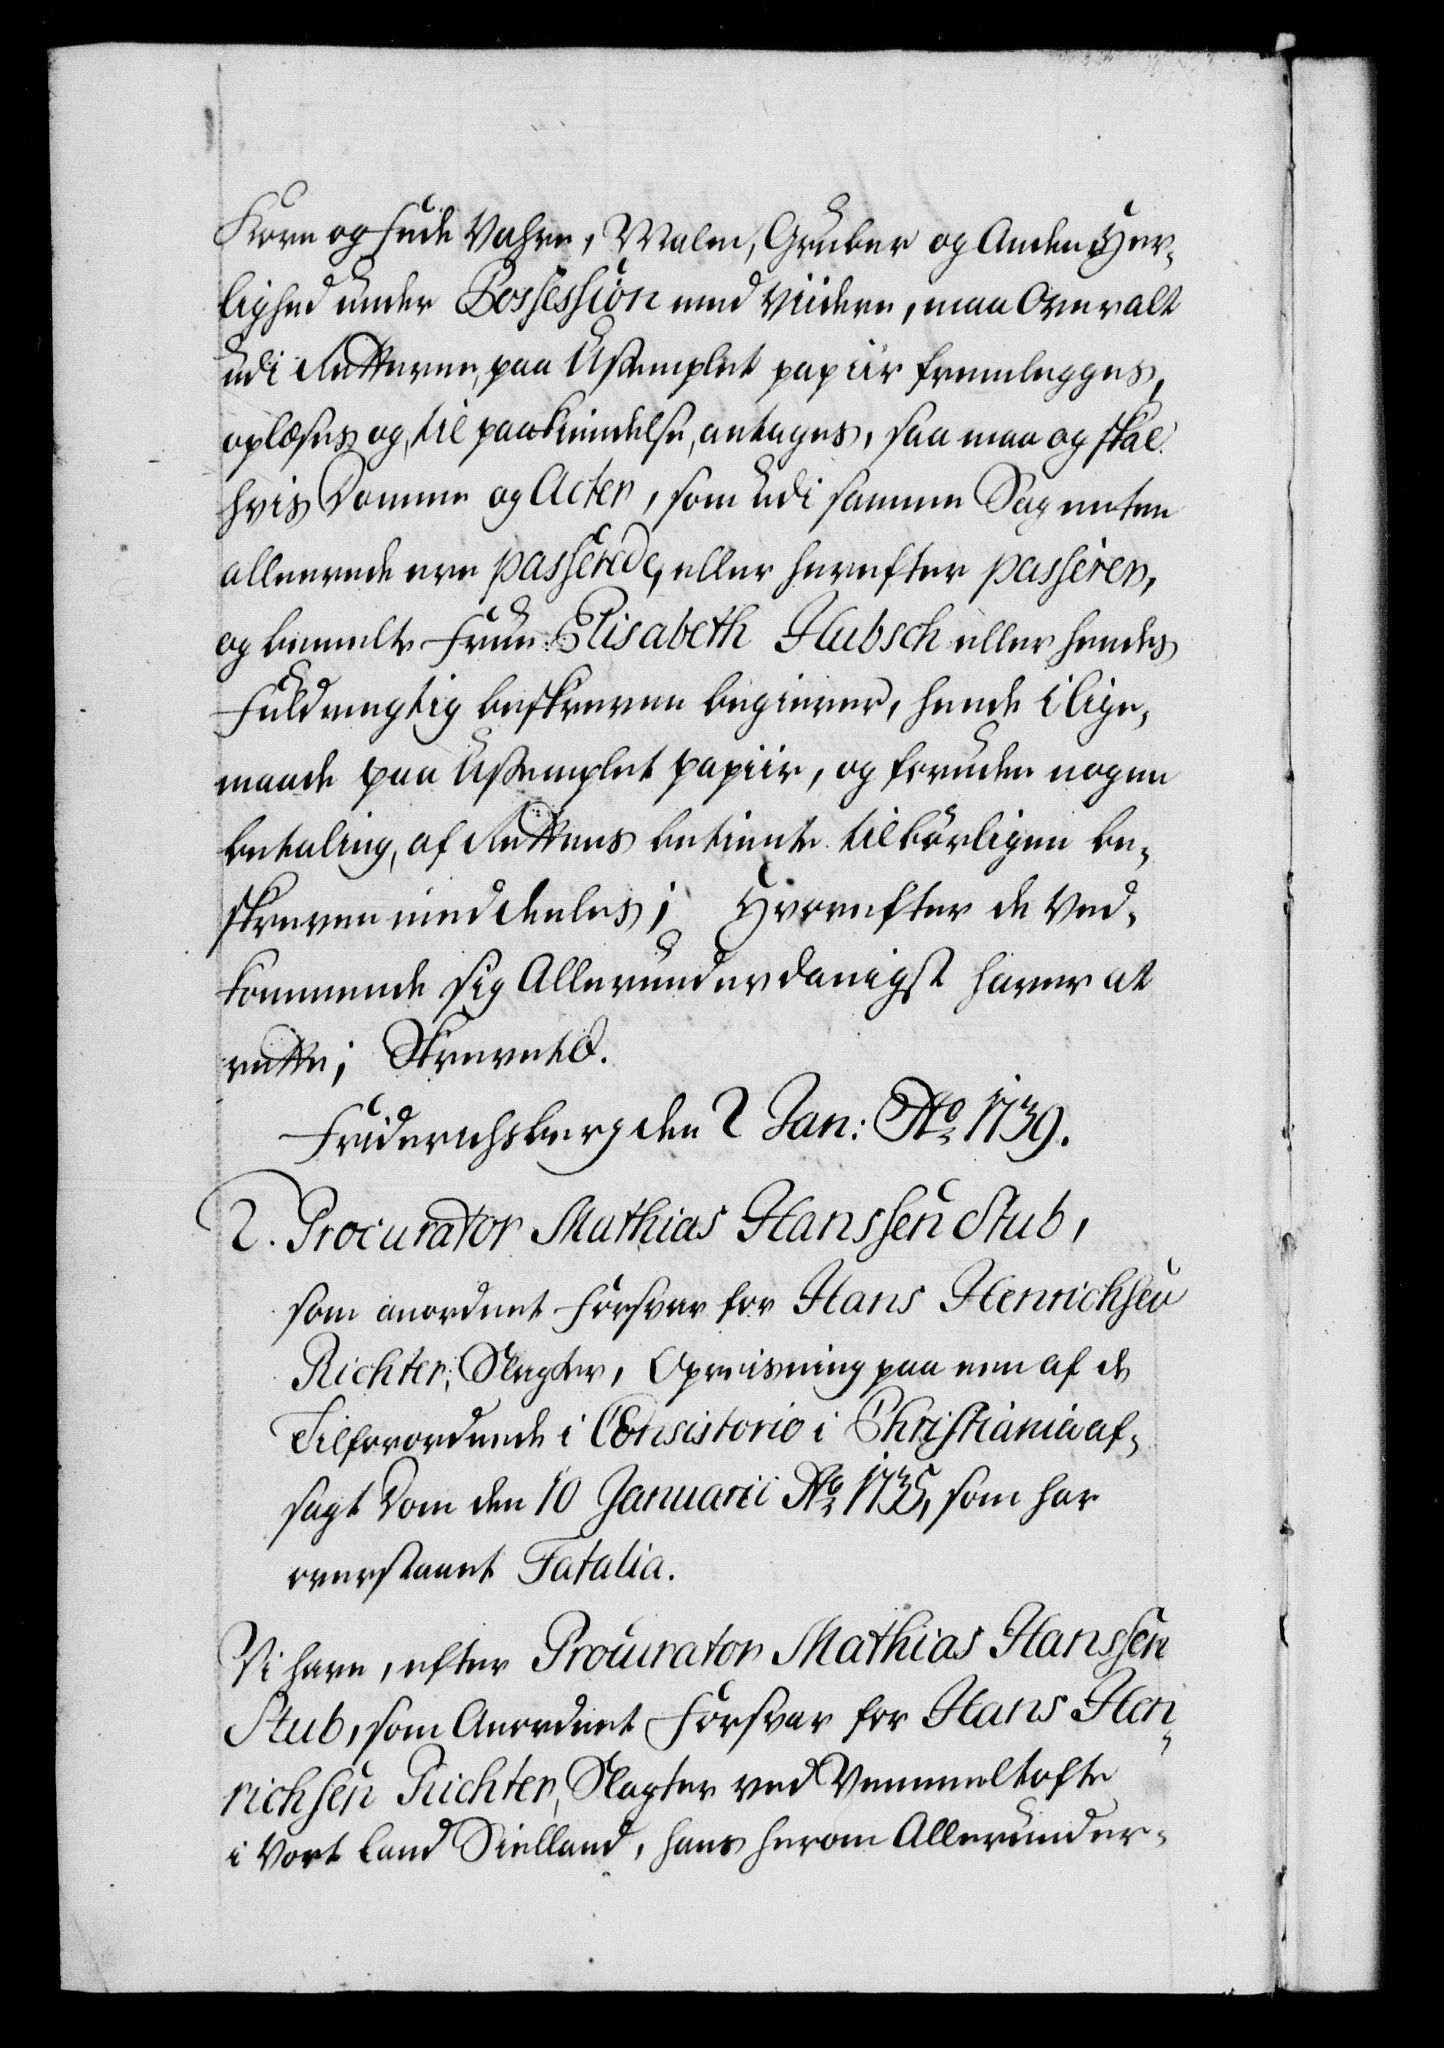 Korn og Fede Vahre, Malm, Gruber og Anden Her-
lighed under Possession med Viidere, maa Overalt
udi Retterne, paa Ustemplet papiir fremlegges,
oplæses og, til paakiendelse, antages, saa maa og skal
hvis Domme og Acter, som udi samme Sag enten
allereede ere passerede, eller herefter passerer,
og bemelte Frue Elisabeth Hubsch eller hendes
Fuldmegtig beskreven begierer, hende i lige-
maade paa Ustemplet papiir, og foruden nogen
betaling, af Rettens betiente tilbörligen be-
skreven meddeeles; Hvorefter de Ved-
kommende sig Allerunderdanigst haver at
rette; Skrevet &.
Friderichsberg den 2 Jan: Ao 1739.
2. Procurator Mathias Hanssen Stub,
som anordnet Forsvar for Hans Henrichsen
Richter, Slagter, Opreisning paa een af de
Tilforordnede i Consistorio i Christiania af-
sagt Dom den 10 Januarii Ao 1735, som har
overstaaet Fatalia.
Vi have, efter Procurator Mathias Hanssen
Stub, som Anordnet Forsvar for Hans Hen-
richsen Richter, Slagter ved Vemmeltofte
i Vort Land Sielland, hans herom Allerunder-